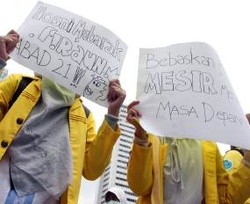 Hosni Mubarak
FIRAUN
ABAD 21
Bebaskan
MESIR
MASA Depan